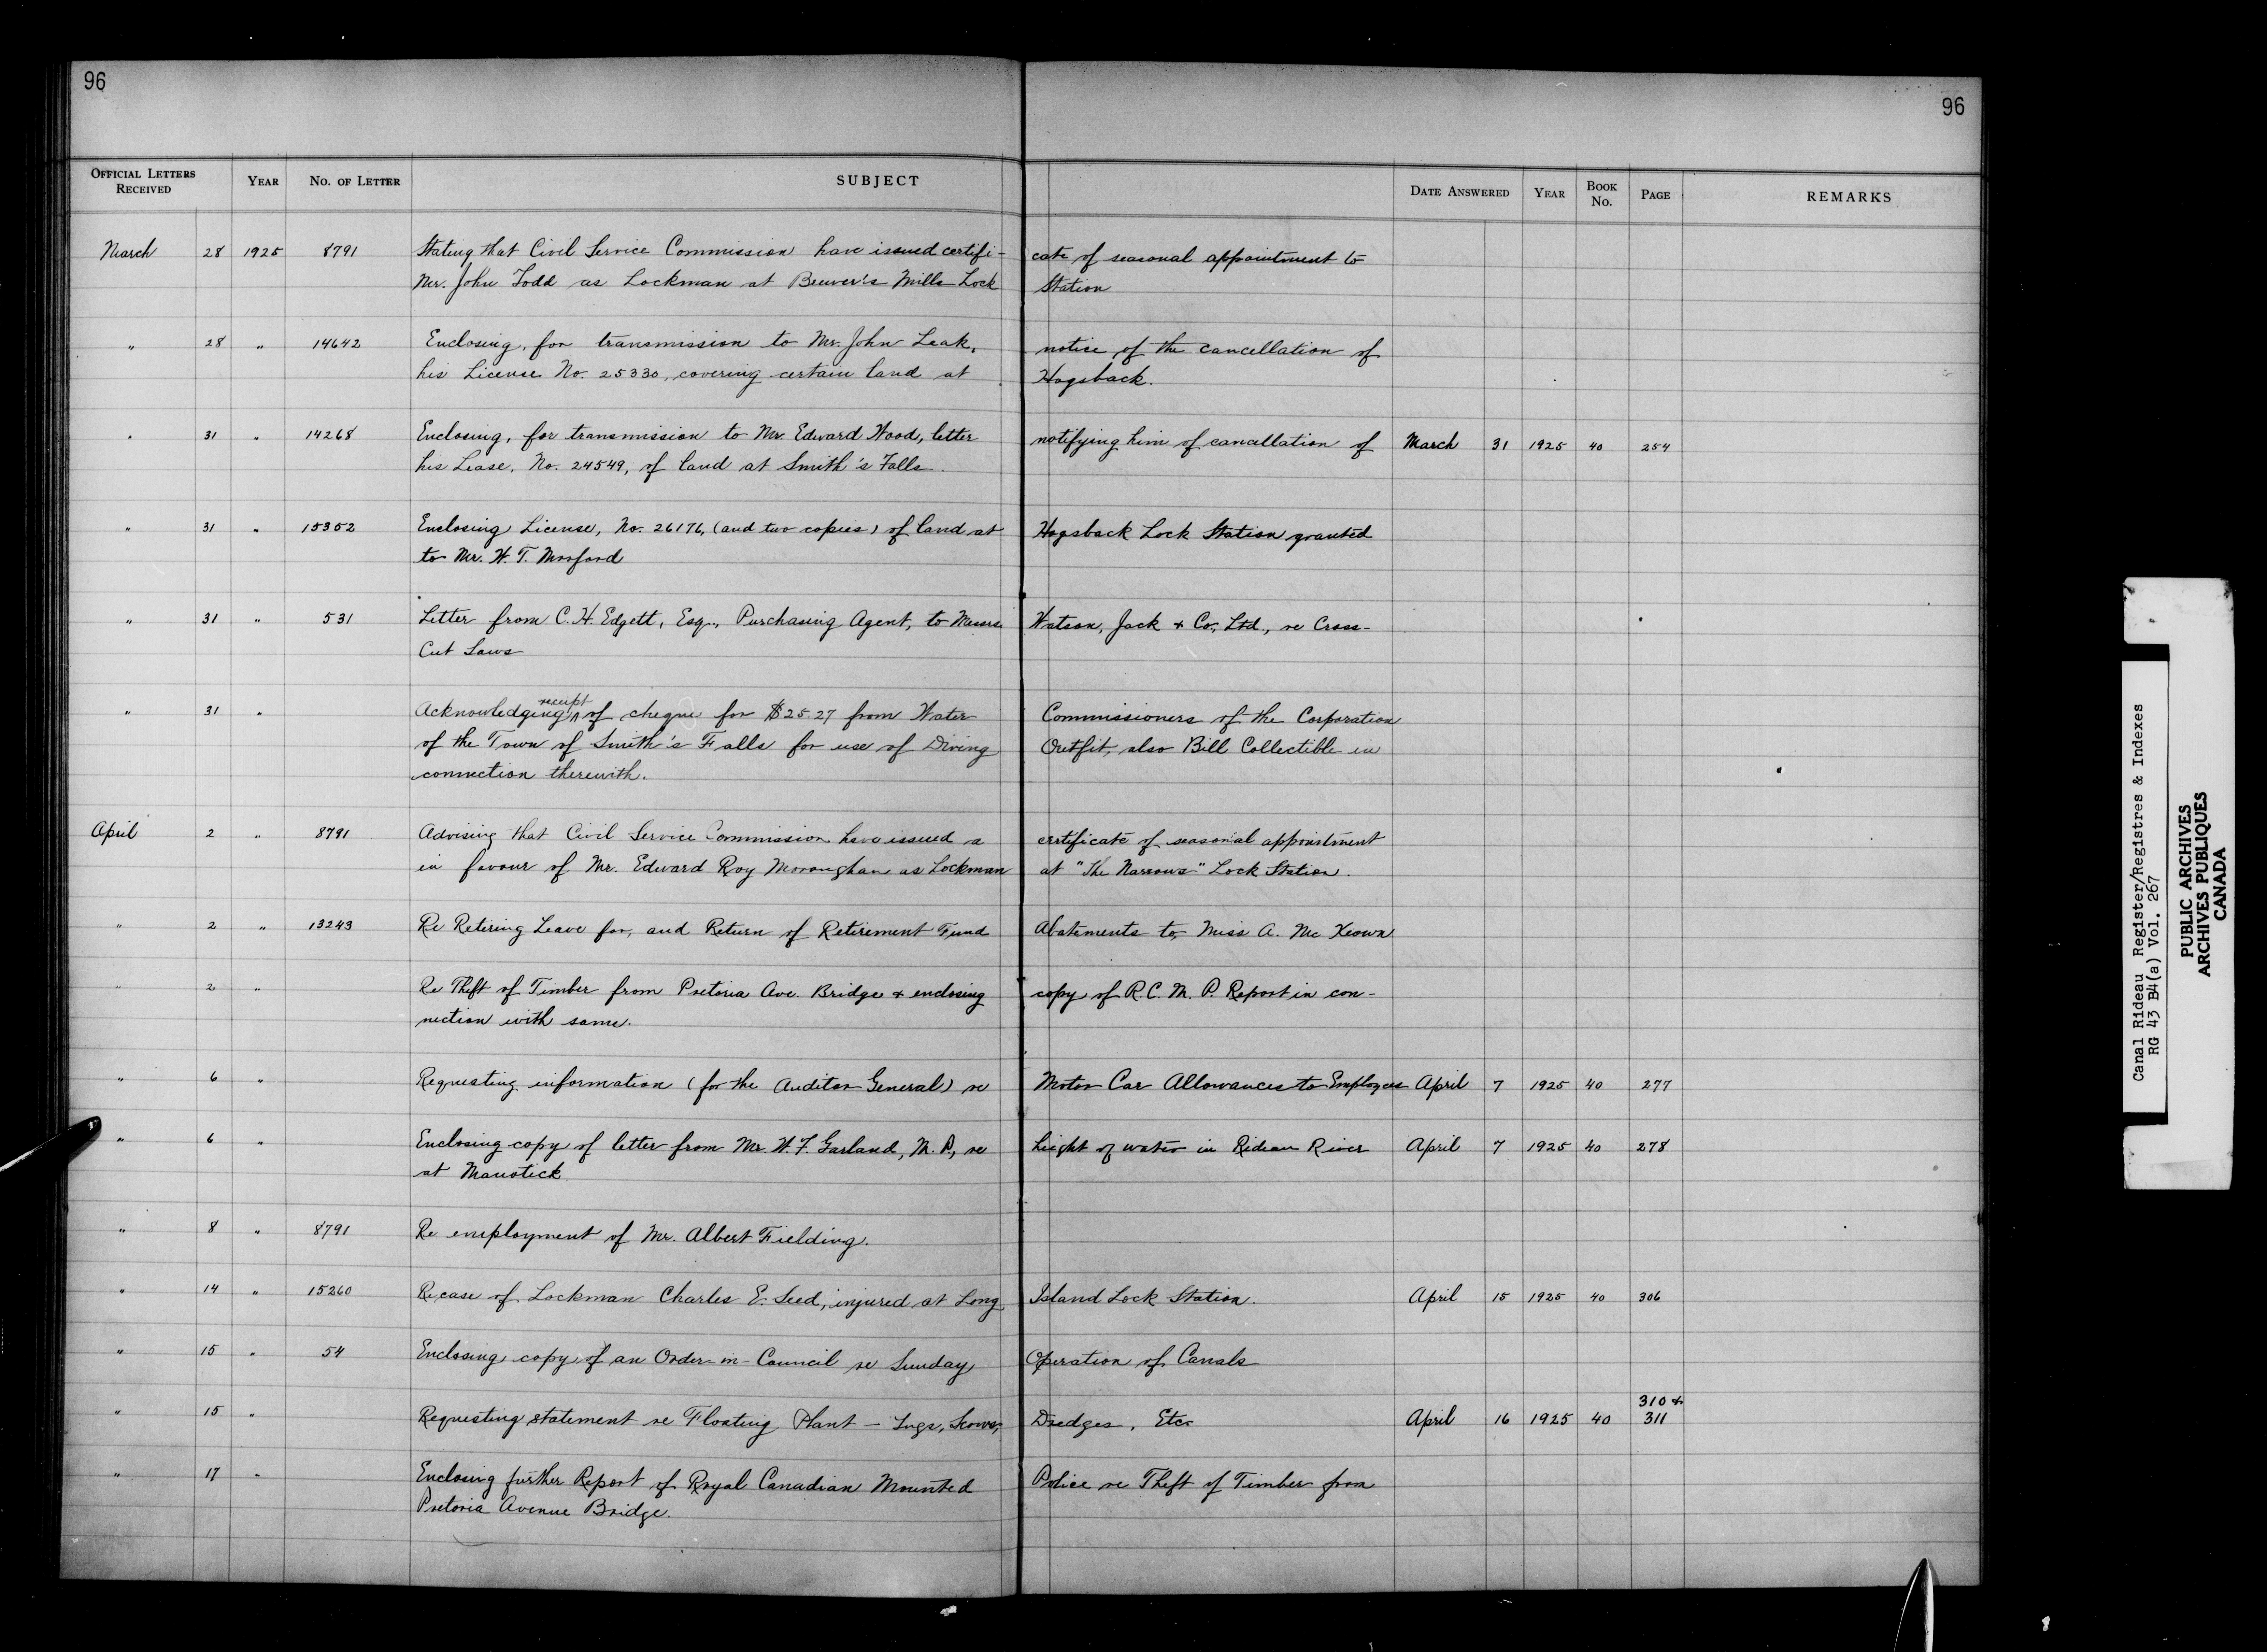 96
96
OFFICIAL LETTERS RECEIVED YEAR NO. OF LETTER SUBJECT DATE ANSWERED YEAR BOOK No. PAGE REMARKS
March 28 1925 8791 Stating that Civil Service Commission have issued certifi- cate of seasonal appointment to
Mr. John Todd as Lockman at Beuver's Mills Lock Station
" 28 " 14642 Enclosing, for transmission to Mr. John Leak, notice of the cancellation of
his License No. 25330, covering certain land at Hogsback.
" 31 " 14268 Enclosing, for transmission to Mr. Edward Wood, letter notifying him of cancellation of March 31 1925 40 254
his Lease, No. 24549, of land at Smith's Falls.
" 31 " 15352 Enclosing License, No. 26176, (and two copies) of land at Hogsback Lock Station granted
to Mr. W. T. Morford
" 31 " 531 Letter from C. H. Edgett, Esq., Purchasing Agent, to Messrs. Watson, Jack & Co., Ltd., re Cross-
Cut Saws
" 31 " Acknowledging receipt of cheque for $25.27 from Water Commissioners of the Corporation
of the Town of Smith's Falls for use of Diving Outfit, also Bill Collectible in
connection therewith.
April 2 " 8791 Advising that Civil Service Commission have issued a certificate of seasonal appointment
in favour of Mr. Edward Roy Moroughan as Lockman at "The Narrows" Lock Station.
" 2 " 13243 Re Retiring Leave for, and Return of Retirement Fund Abatements to, Miss A. McKeown
" 2 " Re Theft of Timber from Pretoria Ave. Bridge & enclosing copy of R.C.M.P. Report in con-
nection with same.
" 6 " Requesting information (for the Auditor General) re Motor Car Allowances to Employees April 7 1925 40 277
" 6 " Enclosing copy of letter from Mr. W. F. Garland, M.P., re height of water in Rideau River April 7 1925 40 278
at Manotick
" 8 " 8791 Re employment of Mr. Albert Fielding.
" 14 " 15260 Re case of Lockman Charles E. Seed, injured at Long Island Lock Station. April 15 1925 40 306
" 15 " 54 Enclosing copy of an Order-in-Council re Sunday Operation of Canals
" 15 " Requesting statement re Floating Plant - Tugs, Scows, Dredges, Etc. April 16 1925 40 310 & 311
" 17 " Enclosing further Report of Royal Canadian Mounted Police re Theft of Timber from
Pretoria Avenue Bridge.
Canal Rideau Register/Registres & Indexes
RG 43 B4(a) Vol. 267
PUBLIC ARCHIVES
ARCHIVES PUBLIQUES
CANADA